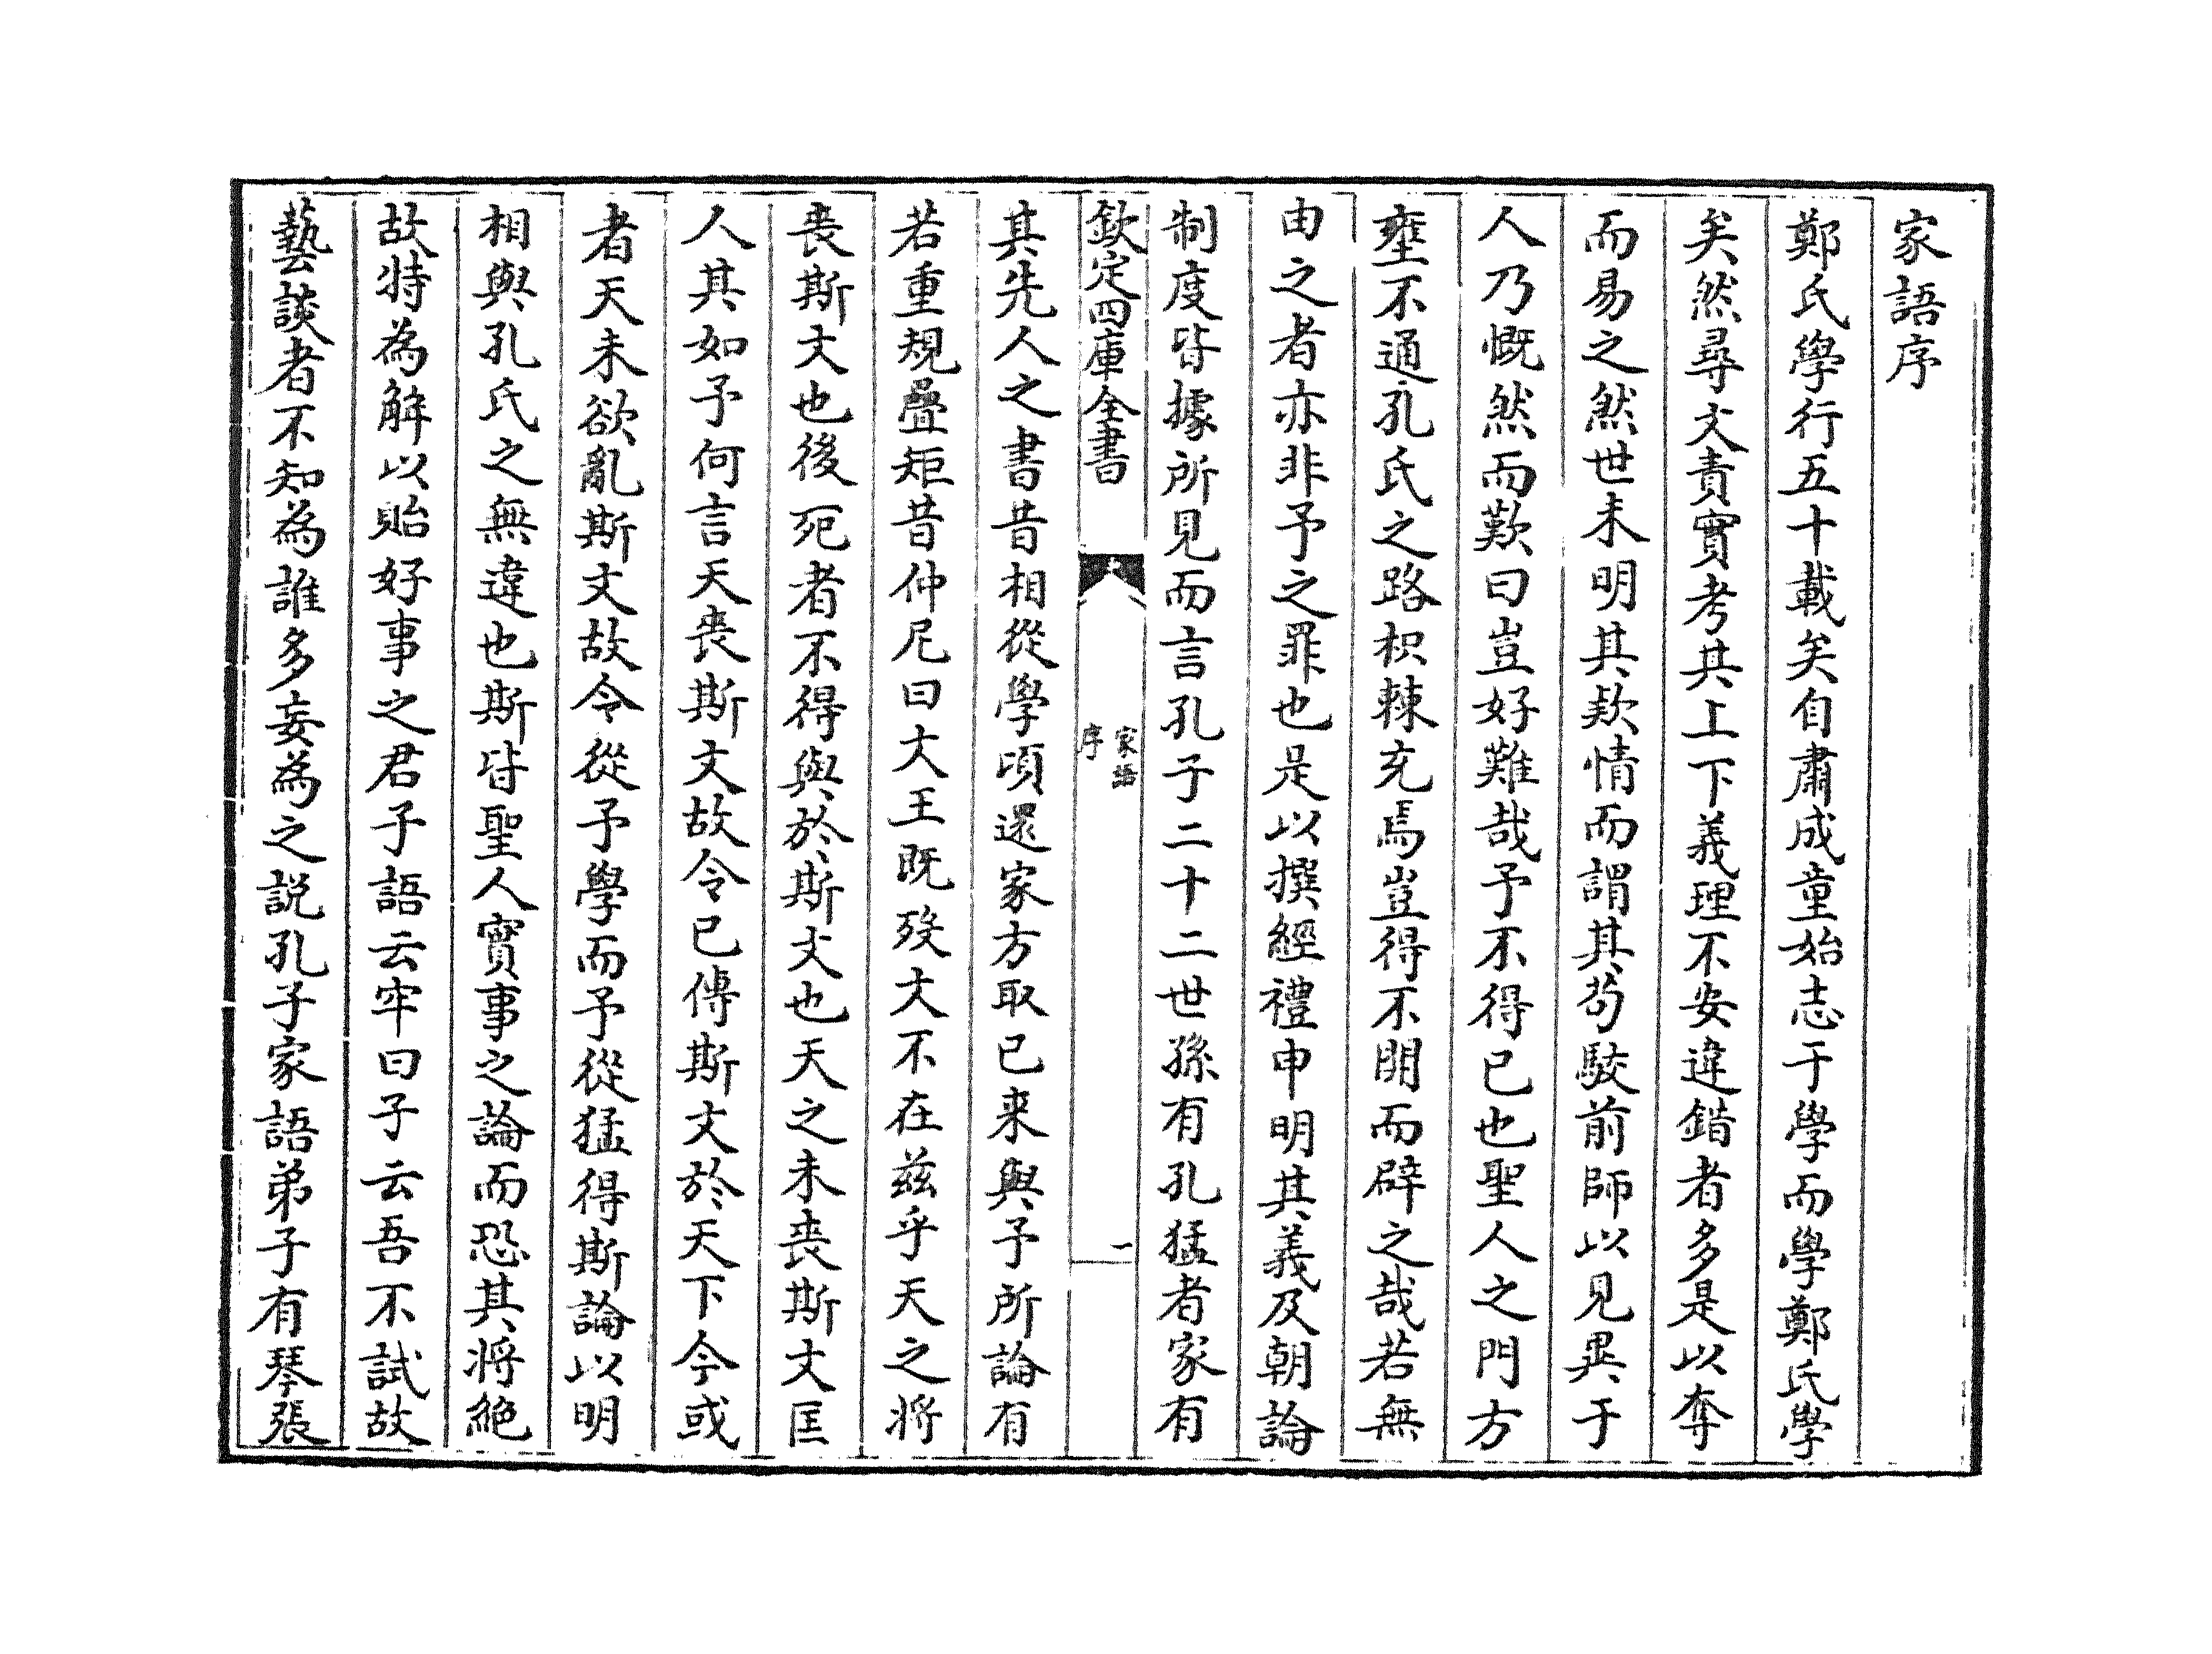 家語序
鄭氏學行五十載矣自肅成童始志于學而學鄭氏學
矣然尋文責實考其上下義理不安違錯者多是以奪
而易之然世未明其欵情而謂其茍駮前師以見異于
人乃慨然而歎曰豈好難哉予不得已也聖人之門方
壅不通孔氏之路枳棘充焉豈得不開而辟之哉若無
由之者亦非予之罪也是以撰經禮申明其義及朝論
制度皆據所見而言孔子二十二世孫有孔猛者家有
欽定四庫全書
家語
序
一
其先人之書昔相從學頃還家方取已来與予所論有
若重規疊矩昔仲尼曰文王既歿文不在兹乎天之將
喪斯文也後死者不得與於斯文也天之未喪斯文匡
人其如予何言天喪斯文故令已傳斯文於天下今或
者天未欲亂斯文故令從予學而予從猛得斯論以明
相與孔氏之無違也斯皆聖人實事之論而恐其將絶
故特為解以貽好事之君子語云牢曰子云吾不試故
藝談者不知為誰多妄為之説孔子家語弟子有琴張